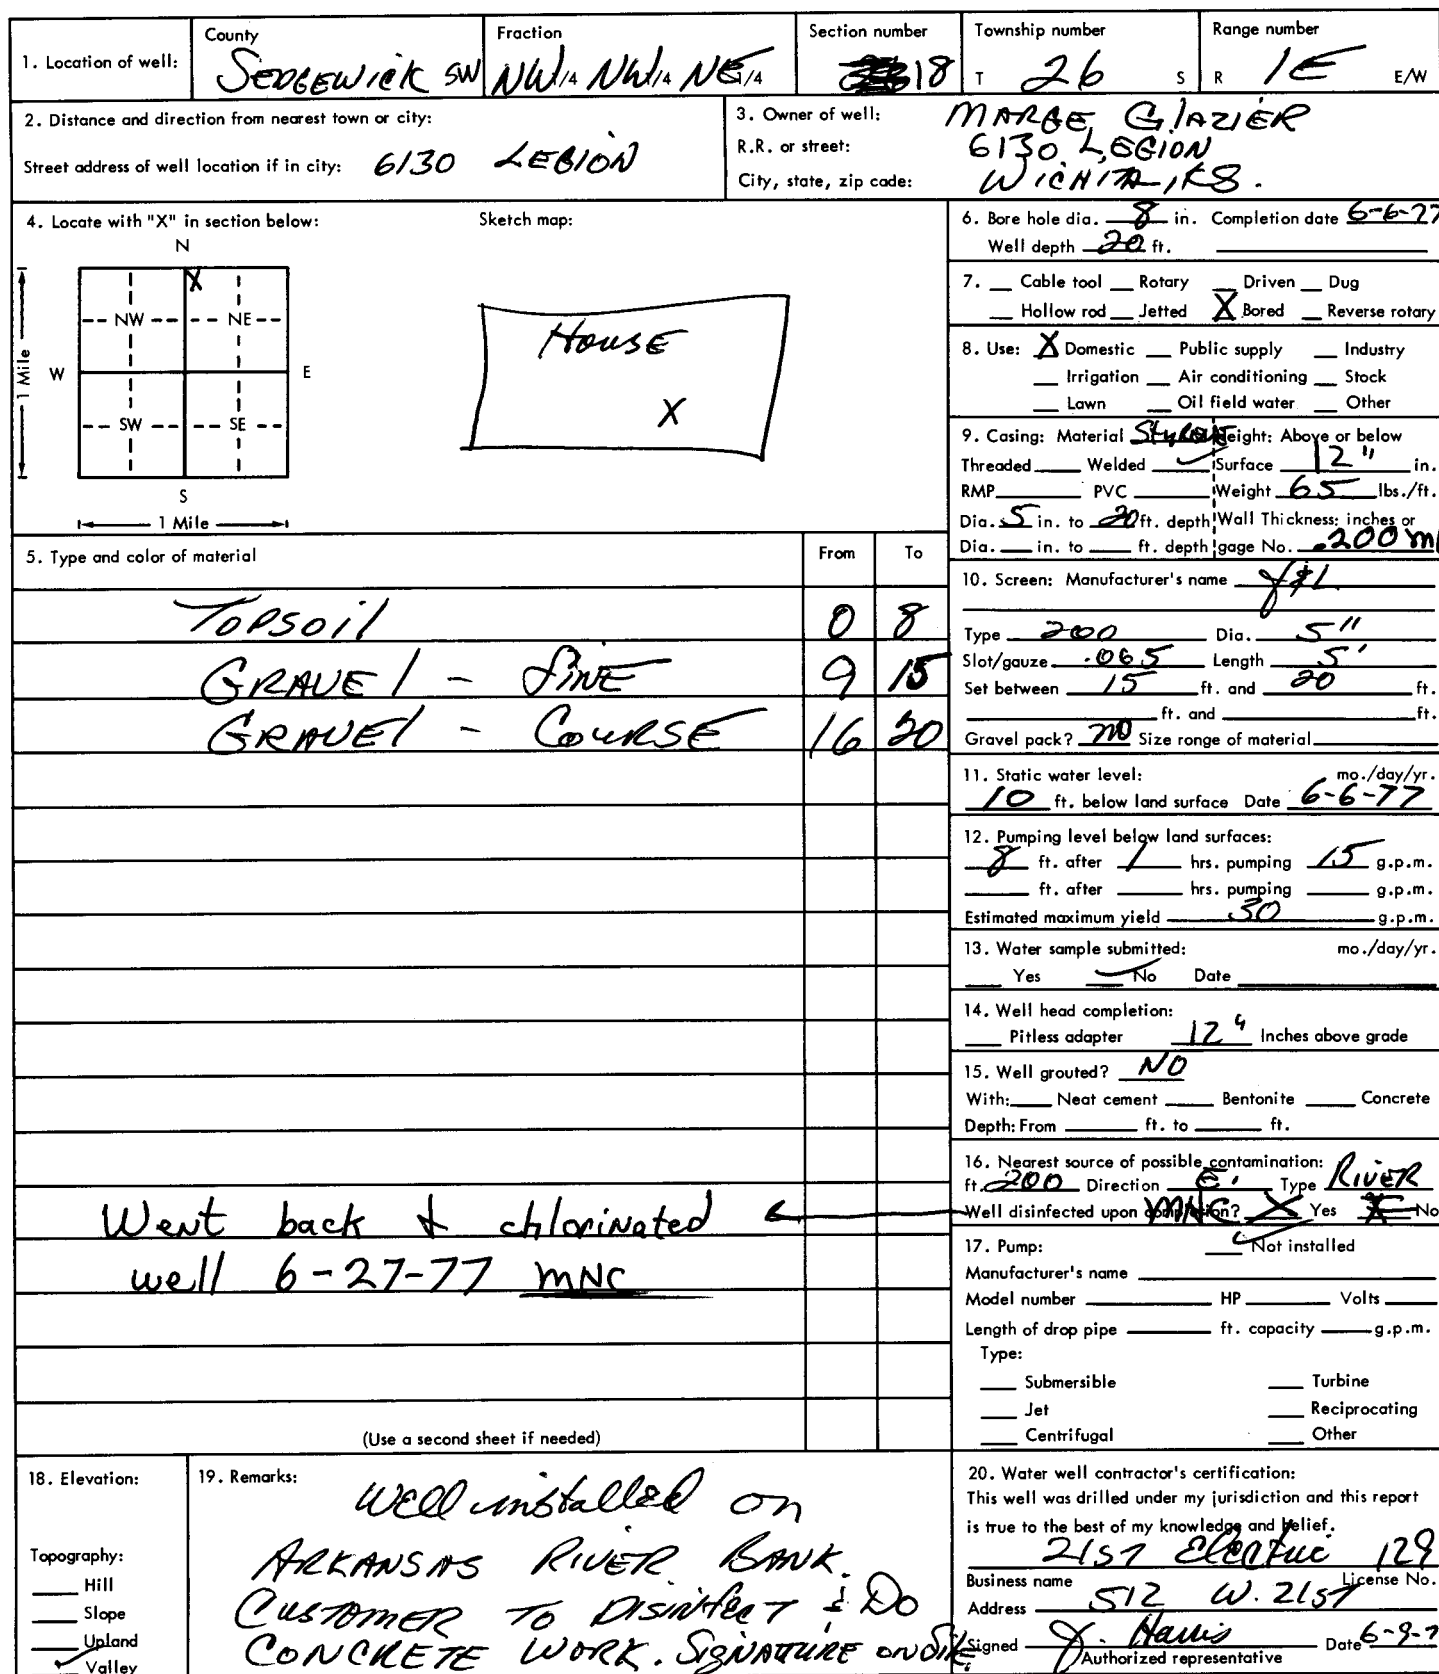 1. Location of well:
County
SEDGEWICK
Fraction
SW NW1/4 NW1/4 NE1/4
Section number
18
Township number
T 26 S
Range number
R 1E E/W
2. Distance and direction from nearest town or city:
Street address of well location if in city: 6130 LEGION
3. Owner of well: MARGE GLAZIER
R.R. or street: 6130 LEGION
City, state, zip code: WICHITA, KS.
4. Locate with "X" in section below:
Sketch map:
N
X
NW NE
W E
SW SE
S
1 Mile
1 Mile
HOUSE
X
5. Type and color of material From To
TOPSOIL 0 8
GRAVEL - FINE 9 15
GRAVEL - COURSE 16 20
Went back & chlorinated
well 6-27-77 MNC
(Use a second sheet if needed)
6. Bore hole dia. 8 in. Completion date 6-6-77
Well depth 20 ft.
7. Cable tool Rotary Driven Dug
Hollow rod Jetted X Bored Reverse rotary
8. Use: X Domestic Public supply Industry
Irrigation Air conditioning Stock
Lawn Oil field water Other
9. Casing: Material Height: Above or below
Threaded Welded ✓ Surface 12" in.
RMP PVC Weight 65 lbs./ft.
Dia. 5 in. to 20 ft. depth Wall Thickness: inches or
Dia. in. to ft. depth gage No. .200
10. Screen: Manufacturer's name
Type 200 Dia. 5"
Slot/gauze .065 Length 5'
Set between 15 ft. and 20 ft.
ft. and ft.
Gravel pack? NO Size range of material
11. Static water level: mo./day/yr.
10 ft. below land surface Date 6-6-77
12. Pumping level below land surfaces:
8 ft. after 1 hrs. pumping 15 g.p.m.
ft. after hrs. pumping g.p.m.
Estimated maximum yield 30 g.p.m.
13. Water sample submitted: mo./day/yr.
Yes ✓ No Date
14. Well head completion:
Pitless adapter 12" Inches above grade
15. Well grouted? NO
With: Neat cement Bentonite Concrete
Depth: From ft. to ft.
16. Nearest source of possible contamination:
ft. 200 Direction E. Type RIVER
Well disinfected upon completion? MNC X Yes X No
17. Pump: ✓ Not installed
Manufacturer's name
Model number HP Volts
Length of drop pipe ft. capacity g.p.m.
Type:
Submersible Turbine
Jet Reciprocating
Centrifugal Other
18. Elevation:
Topography:
Hill
Slope
Upland
✓ Valley
19. Remarks: Well installed on
ARKANSAS RIVER BANK.
CUSTOMER TO DISINFECT & DO
CONCRETE WORK. SIGNATURE ON SITE.
20. Water well contractor's certification:
This well was drilled under my jurisdiction and this report
is true to the best of my knowledge and belief.
21ST Electric 129
Business name License No.
Address 512 W. 21ST
Signed J. Harris Date 6-9-7
Authorized representative